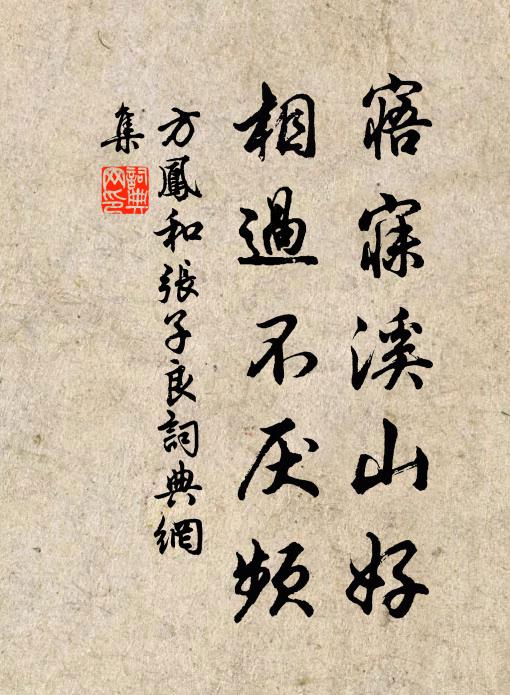 寤寐溪山好
相過不厌頻
方鳳和張子良詞典網
集
詞典
网印